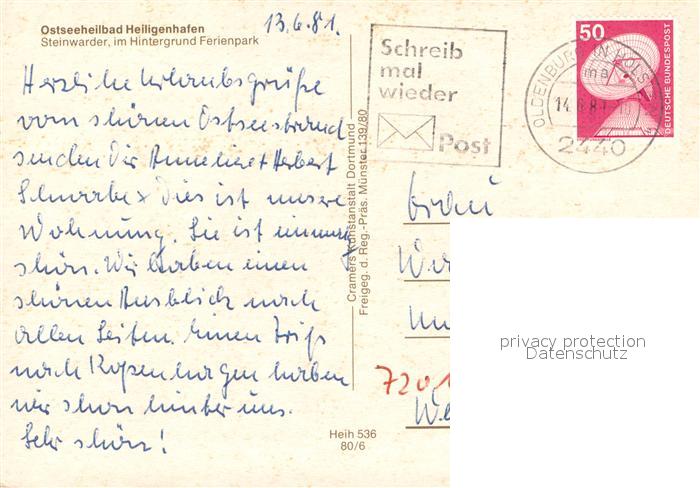 Ostseeheilbad Heiligenhafen
Steinwarder, im Hintergrund Ferienpark
13.6.81.
Herzliche Urlaubsgrüße
vom schönen Ostseestrand
senden Dir Annelie + Herbert
Schwabe x Dies ist unsere
Wohnung. Sie ist
schön. Wir haben einen
schönen Ausblick nach
allen Seiten. Einen Trip
nach Kopenhagen haben
wir schon hinter uns.
Sehr schön!
Cramers Kunstanstalt Dortmund
Freigeg. d. Reg.-Präs. Münster 139/80
Heih 536
80/6
Schreib
mal
wieder
Post
OLDENBURG IN HOLST
ma
14.6.81
2440
50
DEUTSCHE BUNDESPOST
Frau
7201
privacy protection
Datenschutz